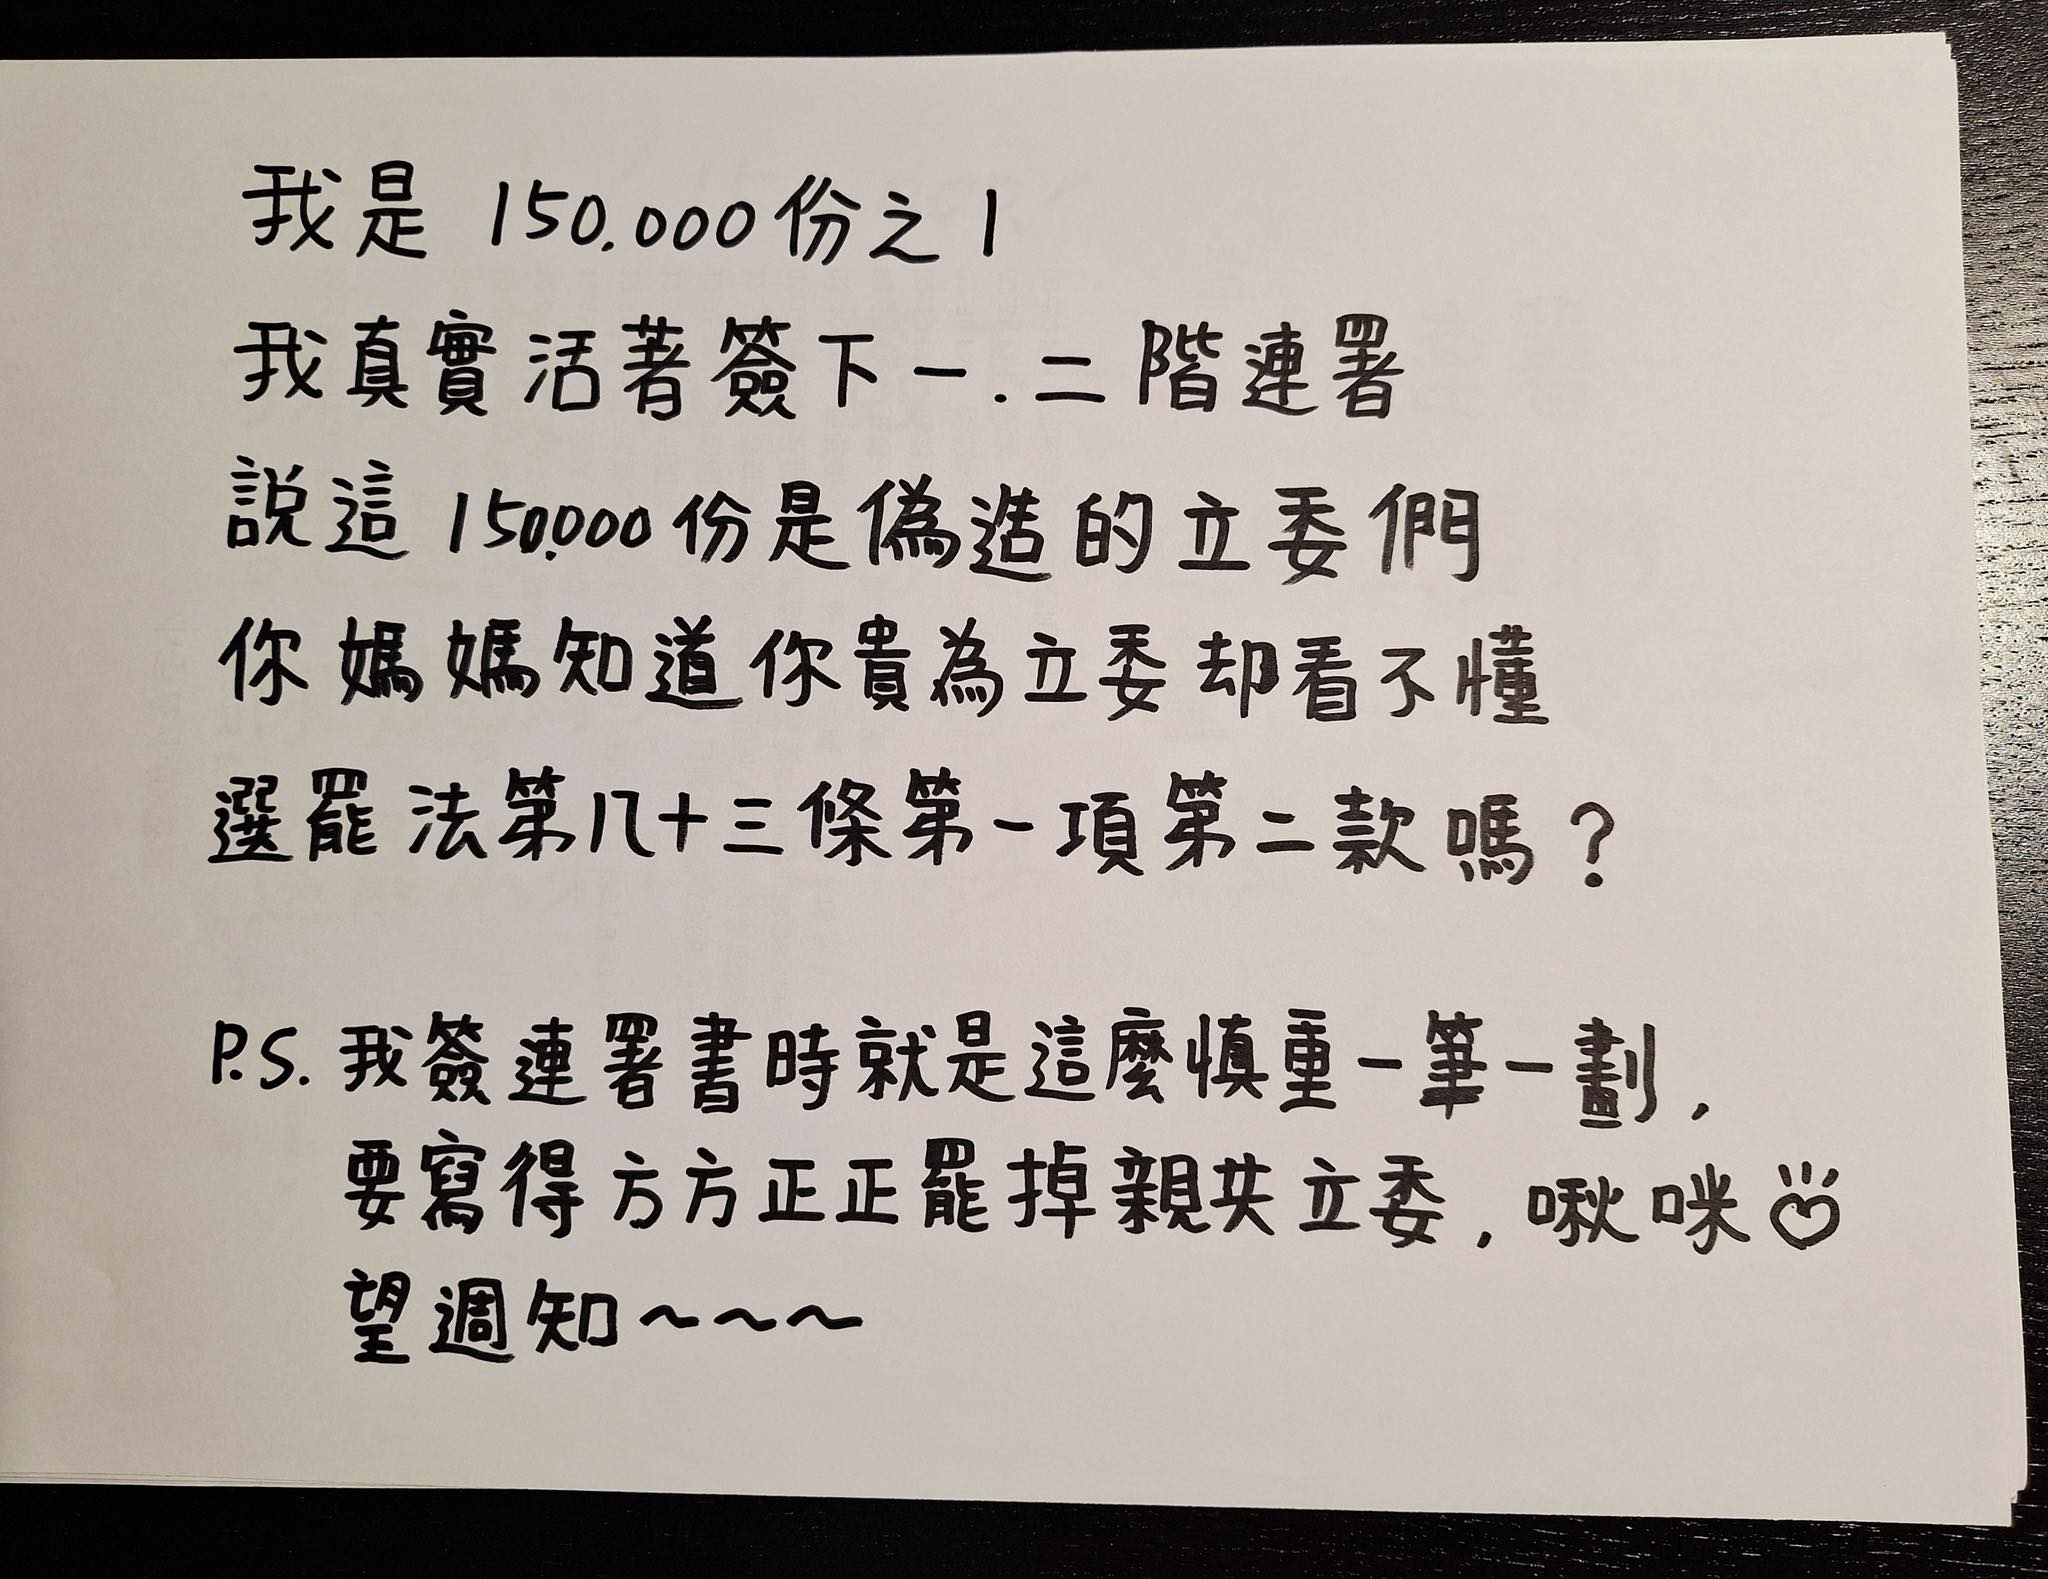 我是 150.000份之1
我真實活著簽下一.二階連署
說這150.000份是偽造的立委們
你媽媽知道你貴為立委却看不懂
選罷法第八十三條第一項第二款嗎?
P.S. 我簽連署書時就是這麼慎重一筆一劃,
要寫得方方正正罷掉親共立委,啾咪
望週知~~~